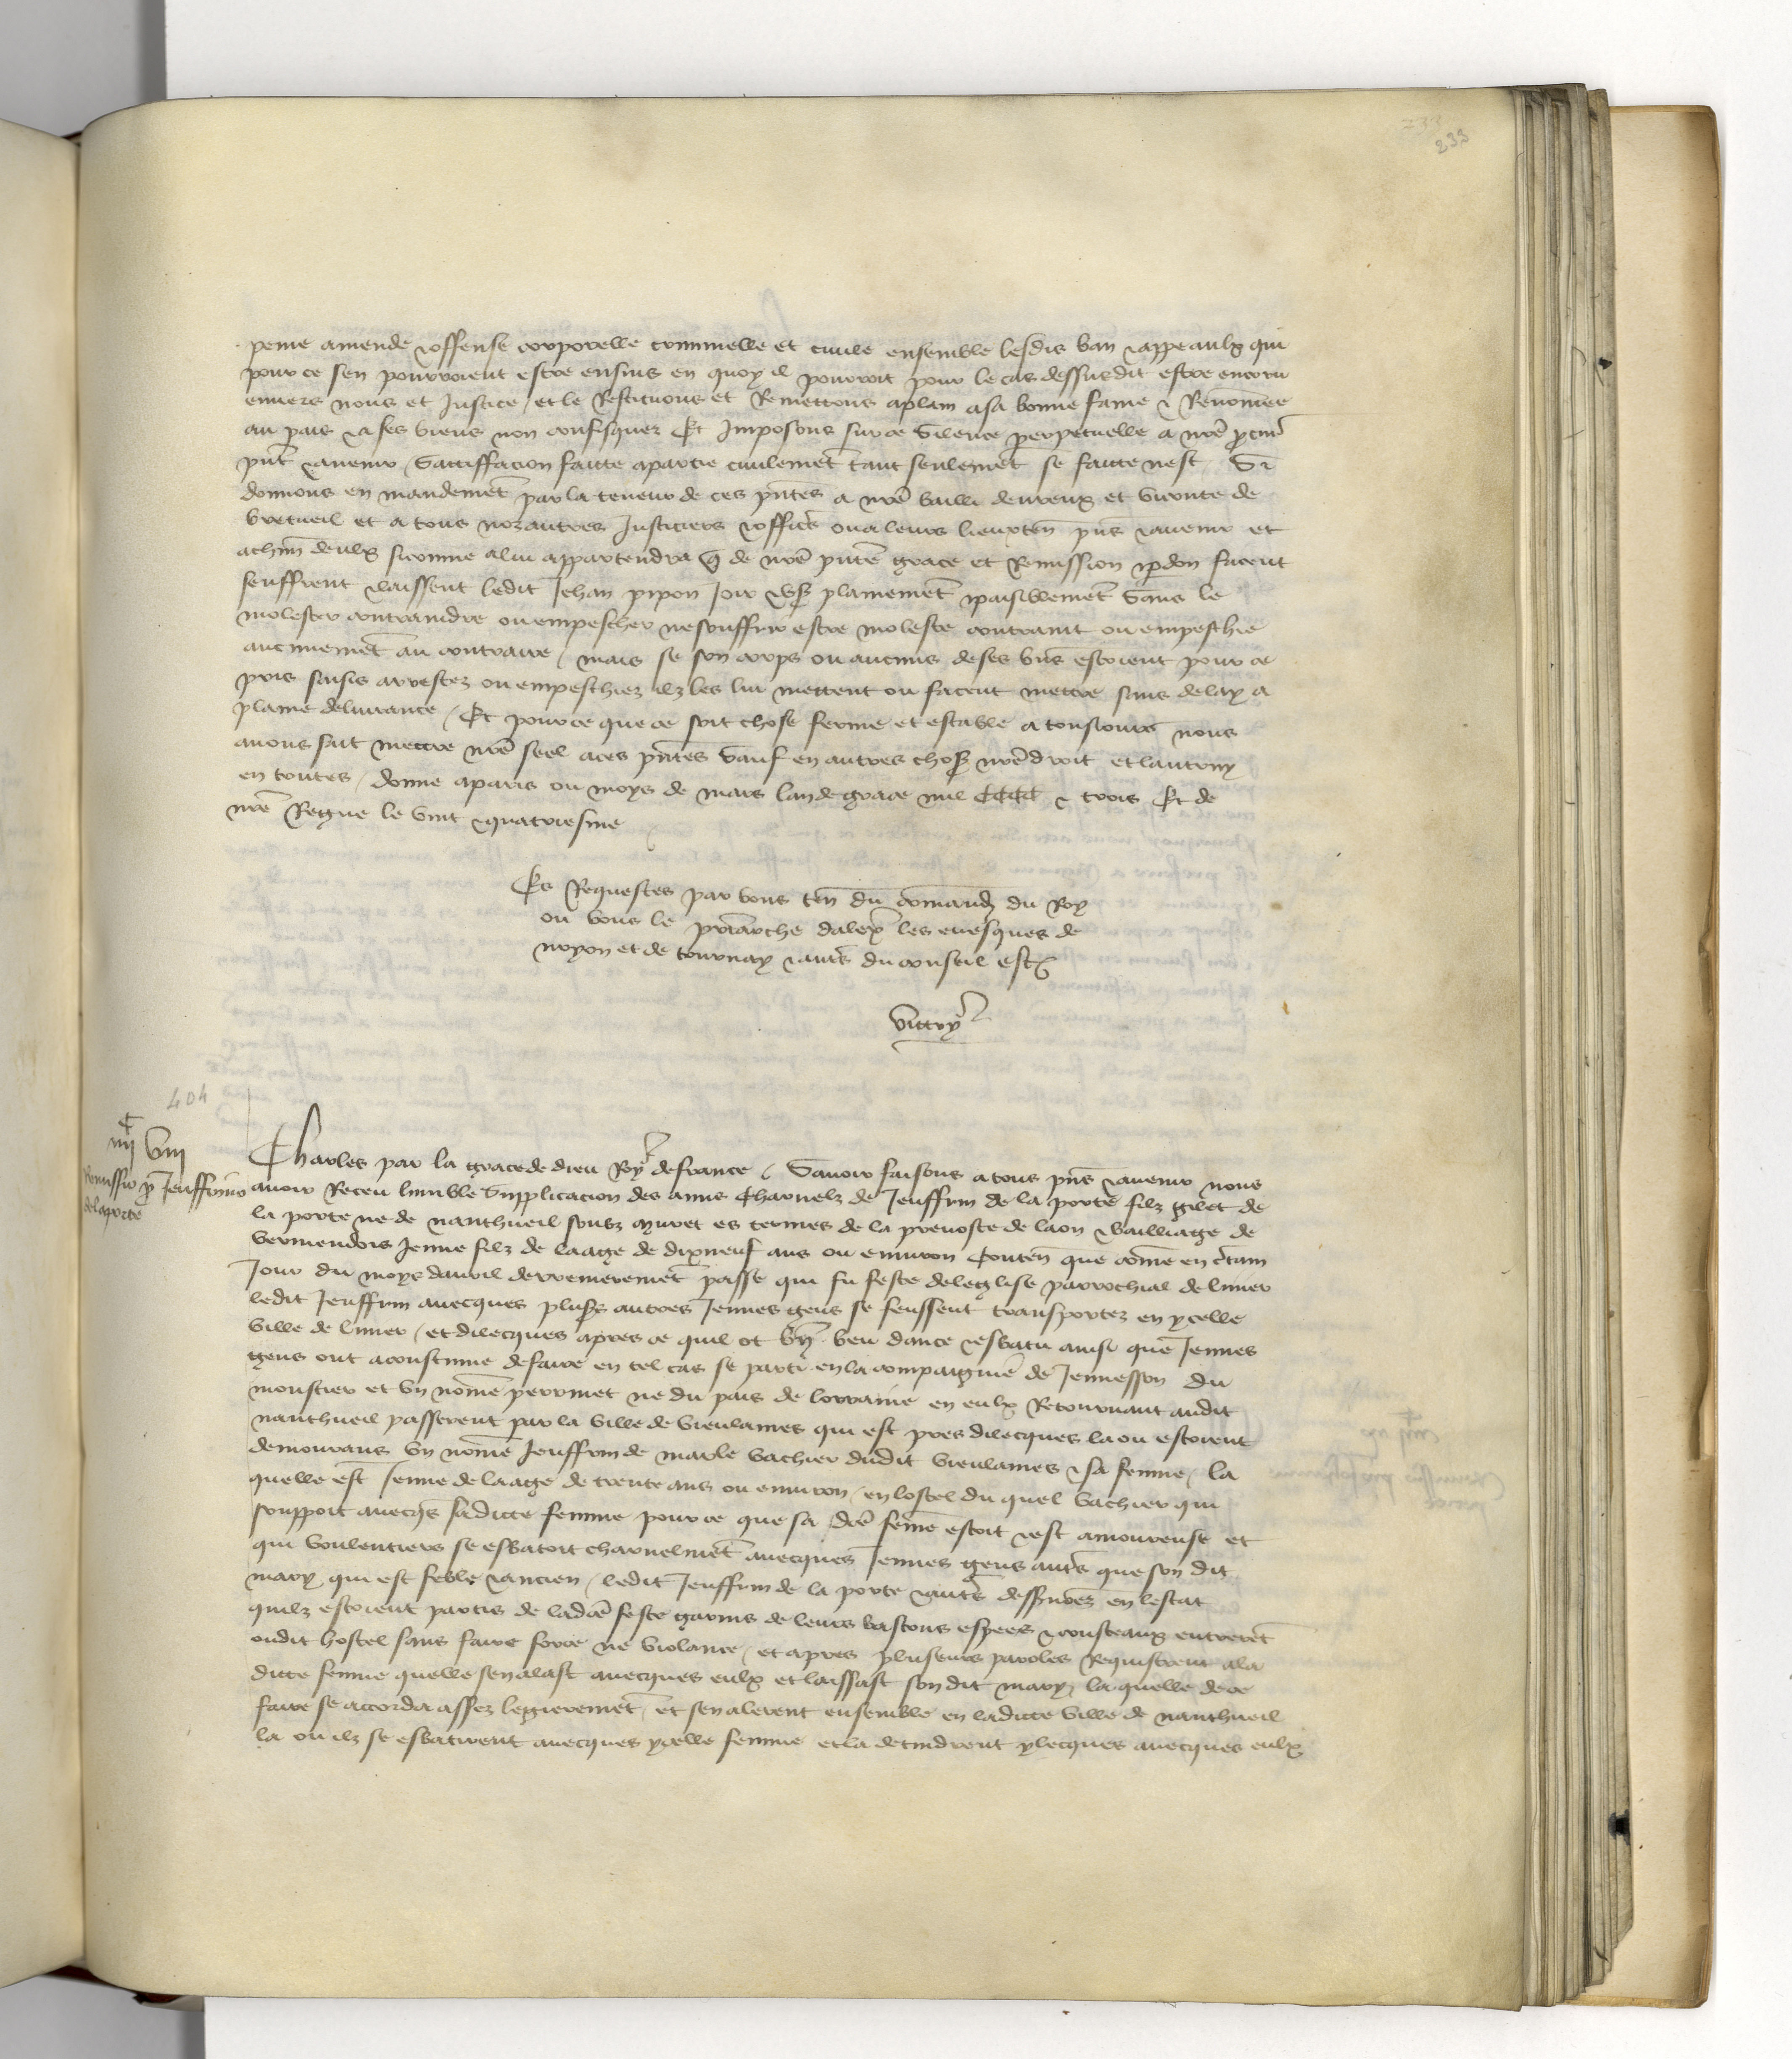 233
peine amende & offense corporelle criminelle et civile ensemble lesdis ban & appeaulx qui
pour ce sen pourroient estre ensuis en quoy il pourroit pour le cas dessusdit estre encoru
envers nous et Justice / et le Restituons et Remettons a plain a sa bonne fame & Renommee
au pais & a ses biens non confisquez Et Imposons sur ce Silence perpetuelle a nre pcur
pnt & avenir / Sattiffacion faitte a partie civilemet tant seulemet se faitte nest Si
donnons en mandemet par la teneur de ces pntes a nre bailli devreux et viconte de
bretueil et a tous noz autres Justiciers & offics ou a leurs lieuxten pns & avenir et
a chun deulx si comme a lui appartendra q de nre pnte grace et Remission & pdon facent
seuffrent & laissent ledit Jehan pipon Joir & us plainemet & paisiblemet Sans le
molester contraindre ou empescher ne souffrir estre moleste contraint ou empeschie
aucunemet au contraire / mais se son corps ou aucuns de ses bns estoient pour ce
pris saisis arrestez ou empeschiez ilz les lui mettent ou facent mettre sans delay a
plaine delivrance / Et pour ce que ce soit chose ferme et estable a tousiours nous
avons fait mettre nre seel a ces pntes Sauf en autres choses nre droit et lautruy
en toutes / donne a paris ou moys de mars lan de grace mil CCCC & trois Et de
nre Regne le vint & quatriesme
Es Requestes par vous ten du comand du Roy
ou vous le priarche dalex les evesques de
noyon et de tournay & auts du conseil esties
Vittry
404
iiijC viij
Remissio p Jeuffrino
de la porte
Charles par la grace de dieu Roy de france / Savoir faisons a tous pns & avenir nous
avoir Receu lumble Supplicacion des amis Charnelz de Jeuffrin de la porte filz gilet de
la porte ne de nanthueil soubz muret es termes de la prevoste de laon & bailliage de
vermendois Jenne filz de laage de dixneuf ans ou environ Conten que come en ctain
Jour du moys davril derrenieremet passe qui fu feste de leglise parrochial de limer
ledit Jeuffrin avecques plusrs autres Jennes gens se feussent transportez en ycelle
ville de limer / et dilecques apres ce quil ot bu veu dance & esbatu ainsi que Jennes
gens ont acoustume de faire en tel cas se parti en la compaignie de Jennesson du
moustier et un nome perrinet ne du pais de lorraine en eulx Retournant audit
nanthueil passerent par la ville de vieulaines qui est pres dilecques la ou estoient
demourans un nome Jeuffrin de marle vachier dudit vieulaines & sa femme / la
quelle est Jenne de laage de trente ans ou environ / en lostel du quel vachier qui
souppoit avecqs sa ditte femme pour ce que sa dte feme estoit & est amoureuse et
qui voulentiers se esbatoit charnelmet avecques Jennes gens auts que son dit
mary qui est feble & ancien / ledit Jeuffrin de la porte & auts dessnomez en lestat
quilz estoient partis de ladte feste garnis de leurs bastons espees & cousteaux entreret
oudit hostel sans faire force ne violance / et apres pluseurs paroles Requistrent a la
ditte femme quelle sen alast avecques eulx et laissast son dit mary / la quelle de ce
faire se accorda assez legieremet / et sen alerent ensemble en laditte ville de nanthueil
la ou ilz se esbatirent avecques ycelle femme et la detindrent ylecques avecques eulx